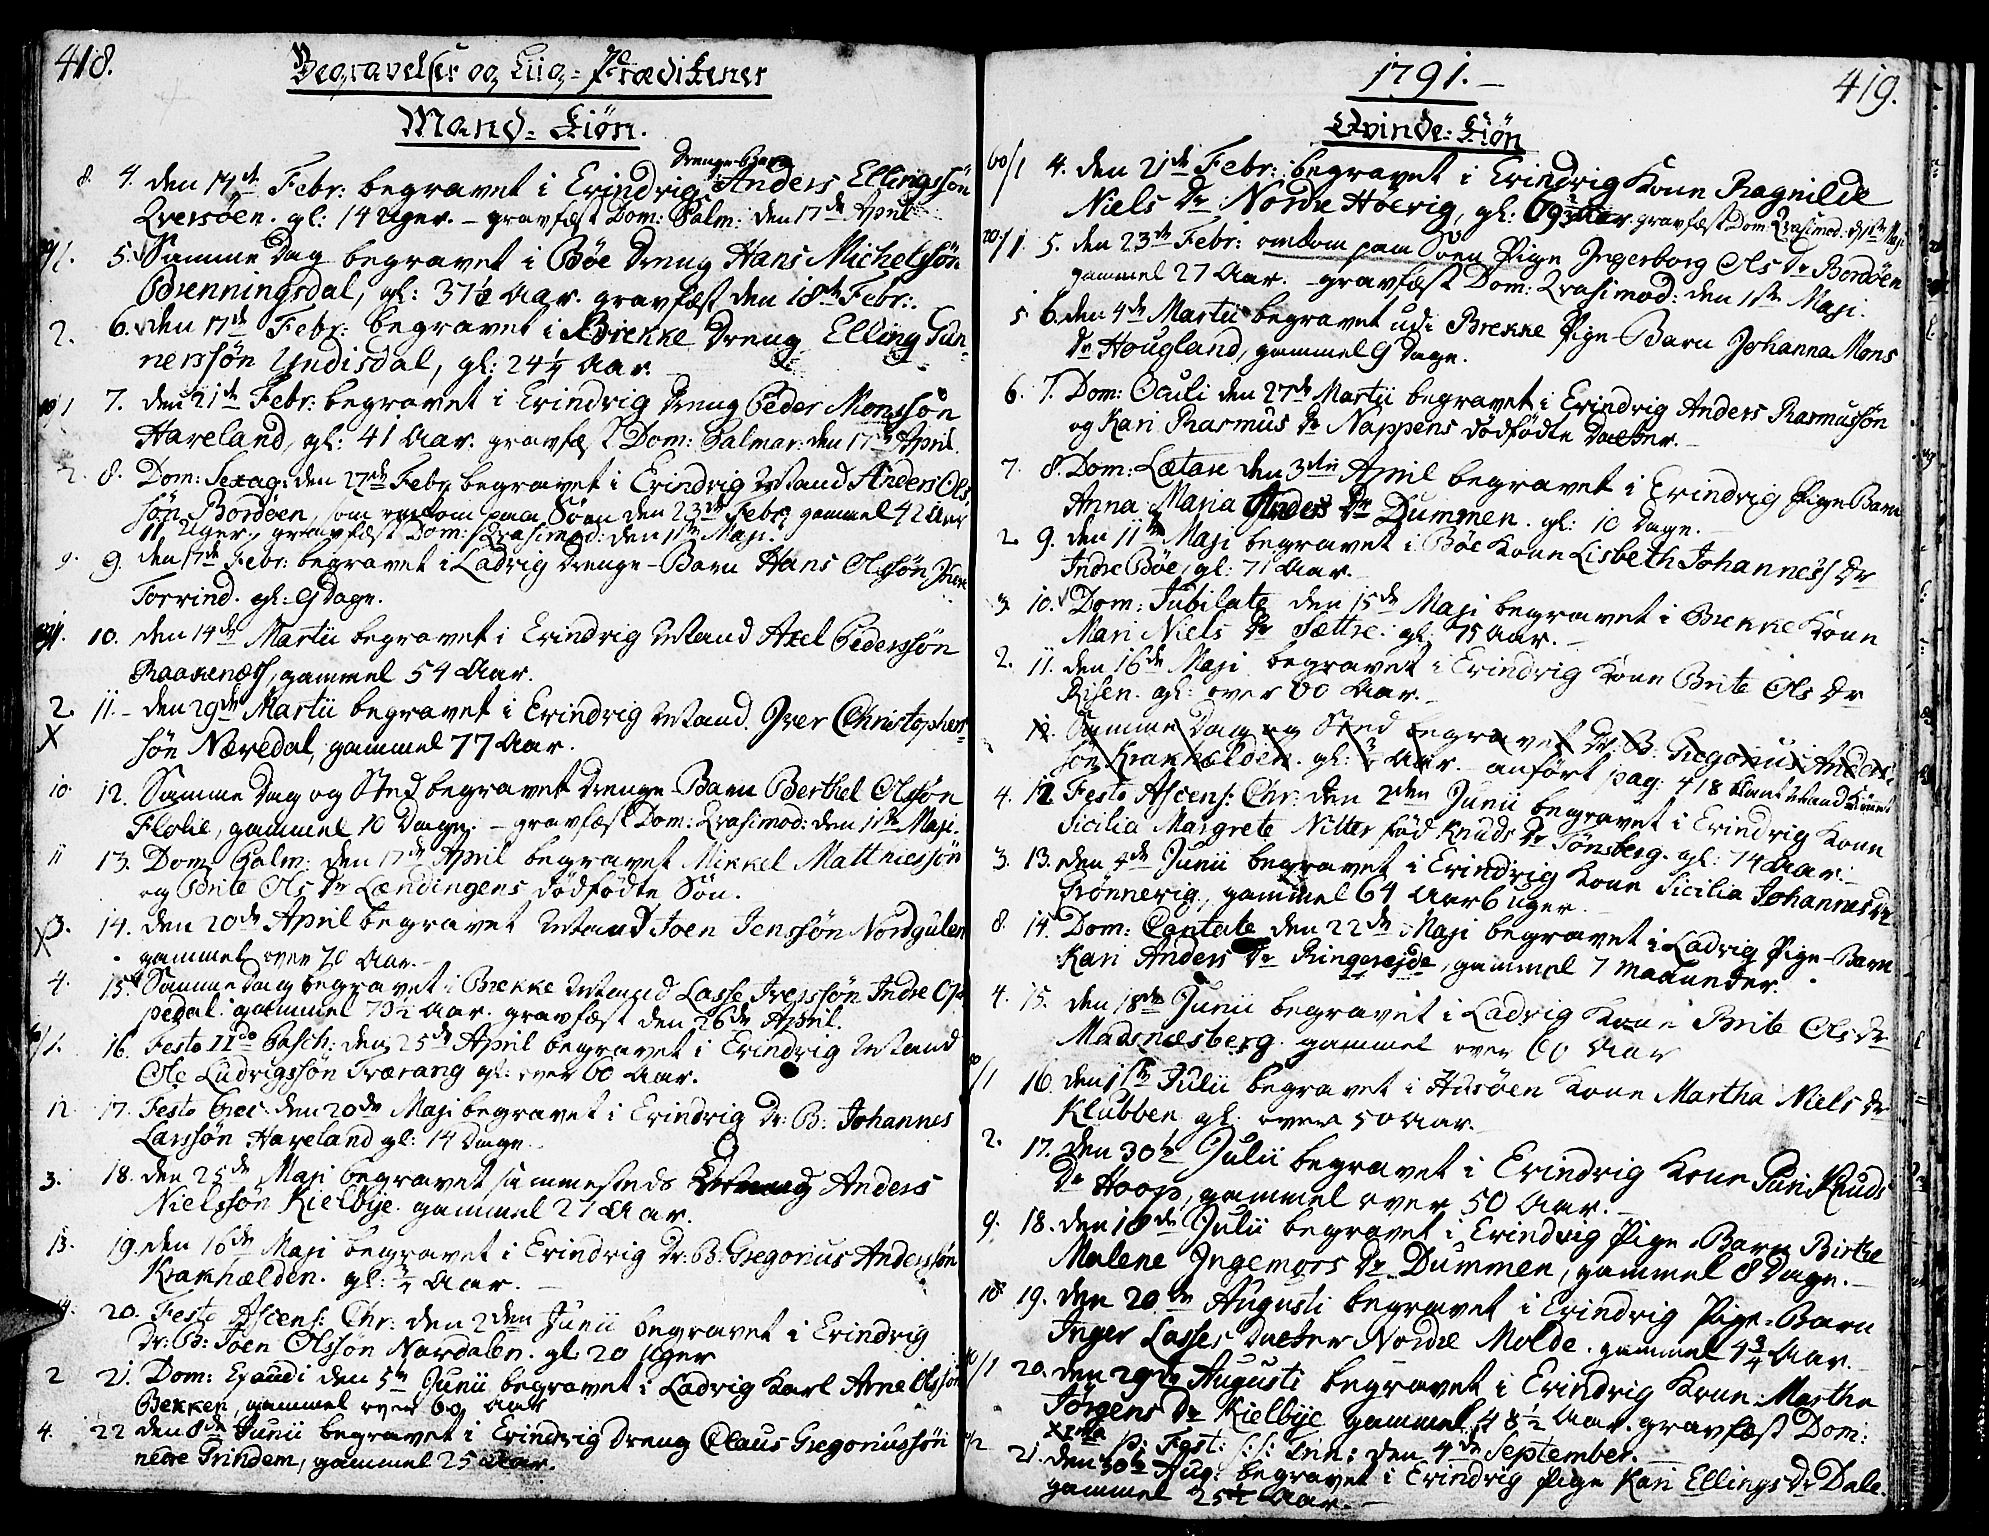 418.
Begravelser og Liig-Prædikener
Mand-Kiøn.
Drenge-Barn
8. 4. den 14de Febr: begravet i Evindvig Anders Ellingssön
Qversöen. gl: 14 Uger. - gravfæst Dom: Palm: den 17de April
5. Samme Dag begravet i Böe Dreng Hans Michelssön
Brenningsdal, gl: 37½ Aar. gravfæst den 18de Febr:
2. 6. den 17de Febr: begravet i Brekke Dreng Elling Gun-
nerssön Undisdal, gl: 24½ Aar.
7. den 21de Febr: begravet i Evindvig Dreng Peder Monssön
Haveland, gl: 41 Aar. gravfæst Dom: Palmar: den 17de April.
2. 8. Dom: Sexag: den 27de Febr begravet i Evindvig Mand Anders Ols
sön Bordöen, som omkom paa Söen den 23de Febr, gammel 42 Aar
11 Uger, gravfæst Dom: Qvasimod: den 1ste Maji.
9. 9. den 17de Febr: begravet i Ladvig Drenge-Barn Hans Olssön Indre
Torvind. gl: 9 Dage.
10. den 14de Martii begravet i Evindvig Mand Axel Pederssön
Raakenæss, gammel 54 Aar.
2. 11. den 29de Martii begravet i Evindvig Mand Iver Christophers-
X sön Næredal, gammel 77 Aar.
10 12. Samme Dag og Sted begravet Drenge-Barn Berthel Olssön
Flolie, gammel 10 Dage. - gravfæst Dom: Qvasimod: den 1ste Maji.
11 13. Dom Palm: den 17de April begravet Mikkel Matthiessön
og Brite Ols Dr Lændingens dödfödte Sön.
3. 14. den 20de April begravet Mand Joen Jenssön Nordgulen
X gammel over 70 Aar.
4. 15. Samme dag begravet i Brekke Mand Lasse Iverssön Indre Op-
pedal. gammel 73½ Aar. gravfæst den 26de April.
16. Festo IIdo Pasch: den 25de April begravet i Evindvig Mand
Ole Ludvigssön Tværang gl: over 60 Aar.
12 17. Festo Prec: den 20de Maji begravet i Evindvig Dr: B: Johannes
Larssön Haveland gl: 14 Dage.
3. 18. den 25de Maji begravet sammesteds Anders
Nielssön Kielbye. gammel 27 Aar.
13. 19. den 16de Maji begravet i Evindvig Dr: B: Gregorius Anderssön
Krakhælden. gl: ¾ Aar.
14. 20. Festo Ascens: Chr: den 2den Junii begravet i Evindvig
Dr: B: Joen Olssön Nardalen. gl: 20 Uger
2 21. Dom: Exaudi den 5te Junii begravet i Ladvig Karl Arne Olssön
Bekken, gammel over 60 Aar
4. 22 den 8de Junii begravet i Evindvig Dreng Claus Gregoriussön
nedre Grindem, gammel 25 Aar.
1791.
419.
Qvinde-Kiøn
4. den 21de Febr: begravet i Evindvig Kone Ragnilde
Niels Dr Nordre Höevig, gl: 69¾ Aar. gravfæst Dom: Qvasimod: d: 1ste Maji
5. den 23de Febr: omkom paa Söen Pige Ingerborg Ols Dr Bordöen
gammel 27 Aar. - gravfæst Dom: Qvasimod: den 1ste Maji.
5 6. den 4de Martii begravet udi Brekke Pige-Barn Johanna Mons
Dr Hougland, gammel 9 Dage.
6. 7. Dom: Oculi den 27de Martii begravet i Evindvig Anders Rasmussön
og Kari Rasmus Dr Nappens dödfödte Datter.
7. 8. Dom: Lætare den 3die April begravet i Evindvig Pige Barn
Anna Maria Anders Dr Dummen. gl: 10 Dage.
2. 9. den 11te Maji begravet i Böe Kone Lisbeth Johanness Dr
Indre Böe, gl: 71 Aar.
3. 10. Dom: Jubilate den 15de Maji begravet i Brekke Kone
Mari Niels Dr Sættre. gl: 75 Aar.
2. 11. den 16de Maji begravet i Evindvig Kone Brite Ols Dr
Risen. gl: over 60 Aar.
12. Samme Dag og Sted begravet Dr: B: Gregorius Anders-
sön Krakhælden. gl: ¾ Aar. - anfört pag: 418 blant Mand Kiönet
4. 12 Festo Ascens: Chr: den 2den Junii begravet i Evindvig Kone
Sicilia Margrete Nitter föd Knuds Dr Tönsberg. gl: 74 Aar.
3. 13. den 4de Junii begravet i Evindvig Kone Sicilia Johannes Dr
Grönnevig, gammel 64 Aar 6 Uger.
8. 14. Dom: Cantate den 22de Maji begravet i Ladvig Pige-Barn
Kari Anders Dr Ringereide, gammel 7 Maaneder.
4. 15. den 18de Junii begravet i Ladvig Kone Brite Ols Dr
Madsnæsberg. gammel over 60 Aar
16. den 1ste Julii begravet i Husöen Kone Martha Niels Dr
Klubben gl: over 50 Aar.
2. 17. den 30te Julii begravet i Evindvig Kone Guri Knuds
Dr Hoop, gammel over 50 Aar.
9. 18. den 10de Julii begravet i Evindvig Pige-Barn Birthe
Malene Ingemors Dr Dummen, gammel 8 Dage.
10 19. den 20de Augusti begravet i Evindvig Pige-Barn
Inger Lasses Datter Nordre Molde. gammel 4¾ Aar.
20. den 29de Augusti begravet i Evindvig Kone Martha
Jörgens Dr Kielbye gammel 48½ Aar. gravfæst Dom:
p: Fest: s:s: Trin: den 4de September.
21. den 30te Aug: begravet i Evindvig Pige Kari Ellings Dr Dale.
gammel 25½ Aar.